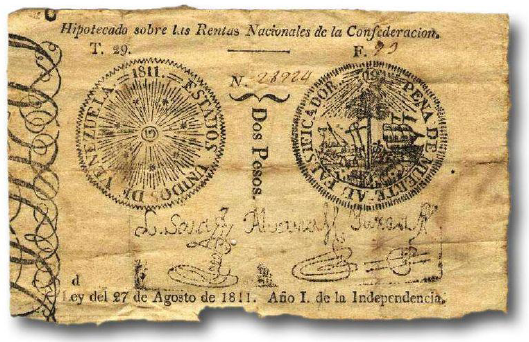 Hipotecado sobre las Rentas Nacionales de la Confederacion.
T. 29. F.
N. 28924
ESTADOS UNIDOS DE VENEZUELA. 1811.
Dos Pesos.
PENA DE MUERTE AL FALSIFICADOR
d
Ley del 27 de Agosto de 1811. Año I. de la Independencia.